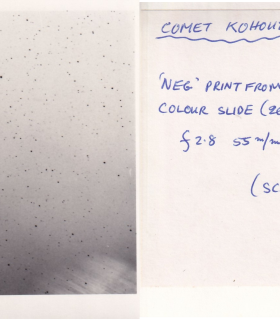 COMET KOHOU
'NEG' PRINT FROM
COLOUR SLIDE (2
f 2.8 55 m/m
(SC